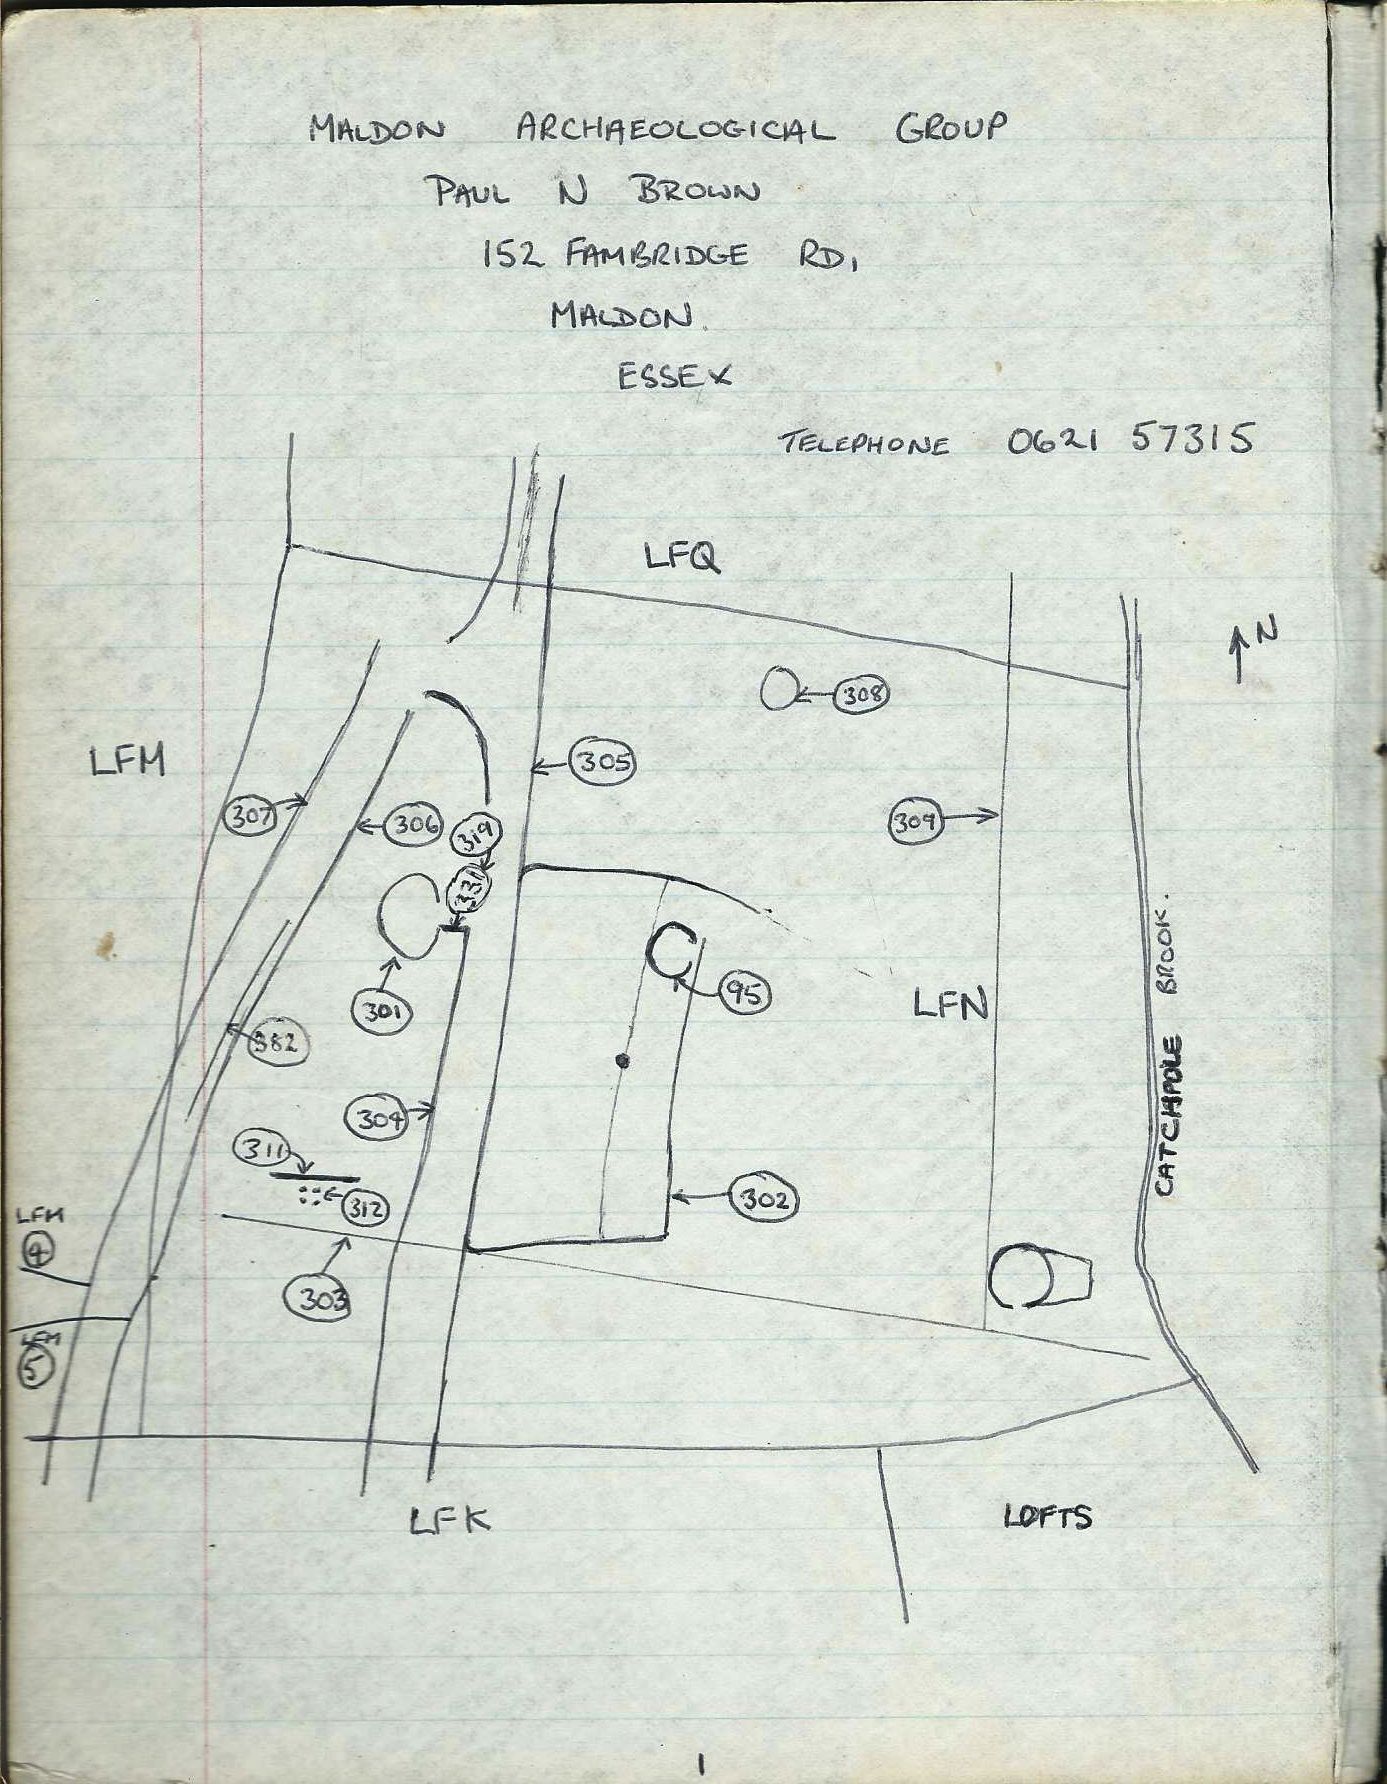 MALDON ARCHAEOLOGICAL GROUP
PAUL N BROWN
152 FAMBRIDGE RD,
MALDON.
ESSEX
TELEPHONE 0621 57315
LFQ
N
308
LFM
305
307
306
319
309
331
95
301
LFN
CATCHPOLE BROOK.
382
304
311
302
312
LFM
4
303
LFM
5
LFK
LOFTS
1